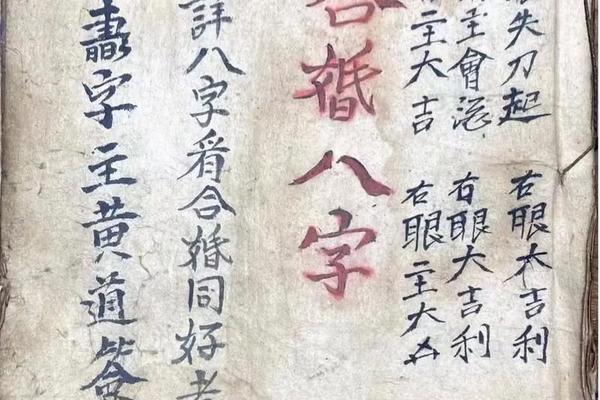 失刀起 右眼大吉利
主會 右眼大吉利
二主大吉 右眼二主大凶
合婚八字
詳八字看合婚同好老
字主黄道簽